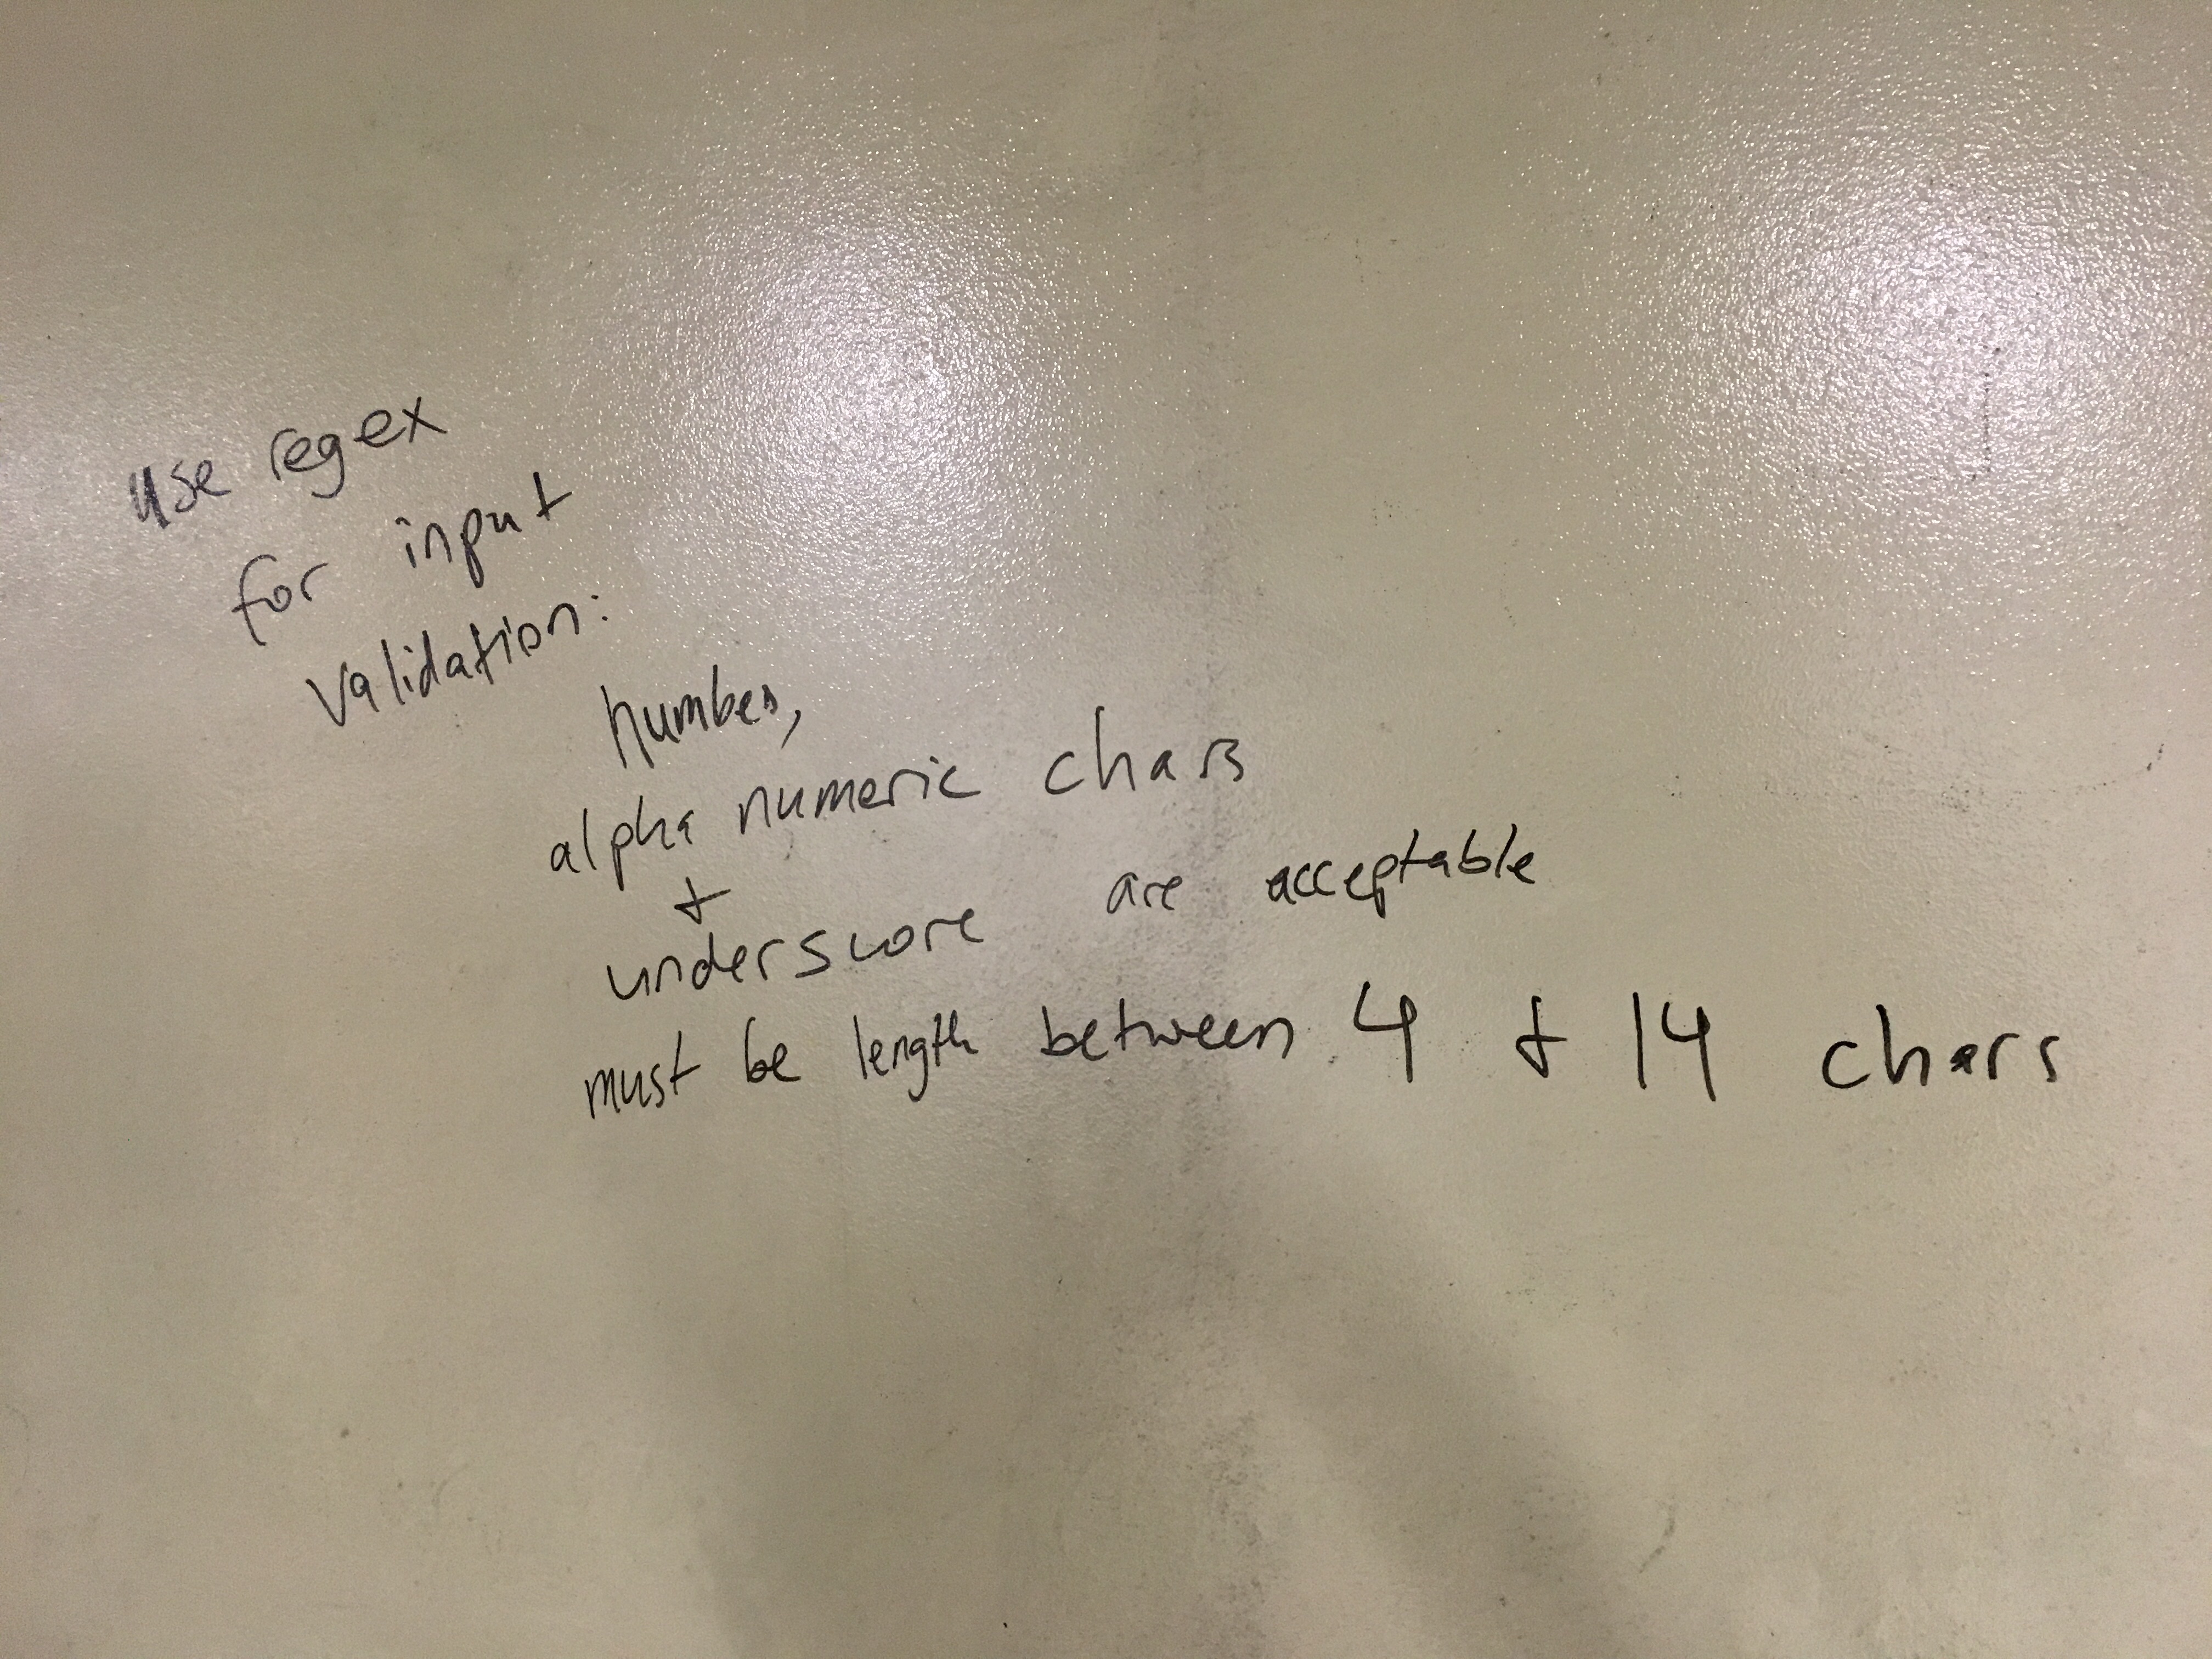 use regex
for input
validation:
numbers,
alpha numeric chars
+
underscore are acceptable
must be length between 4 + 14 chars